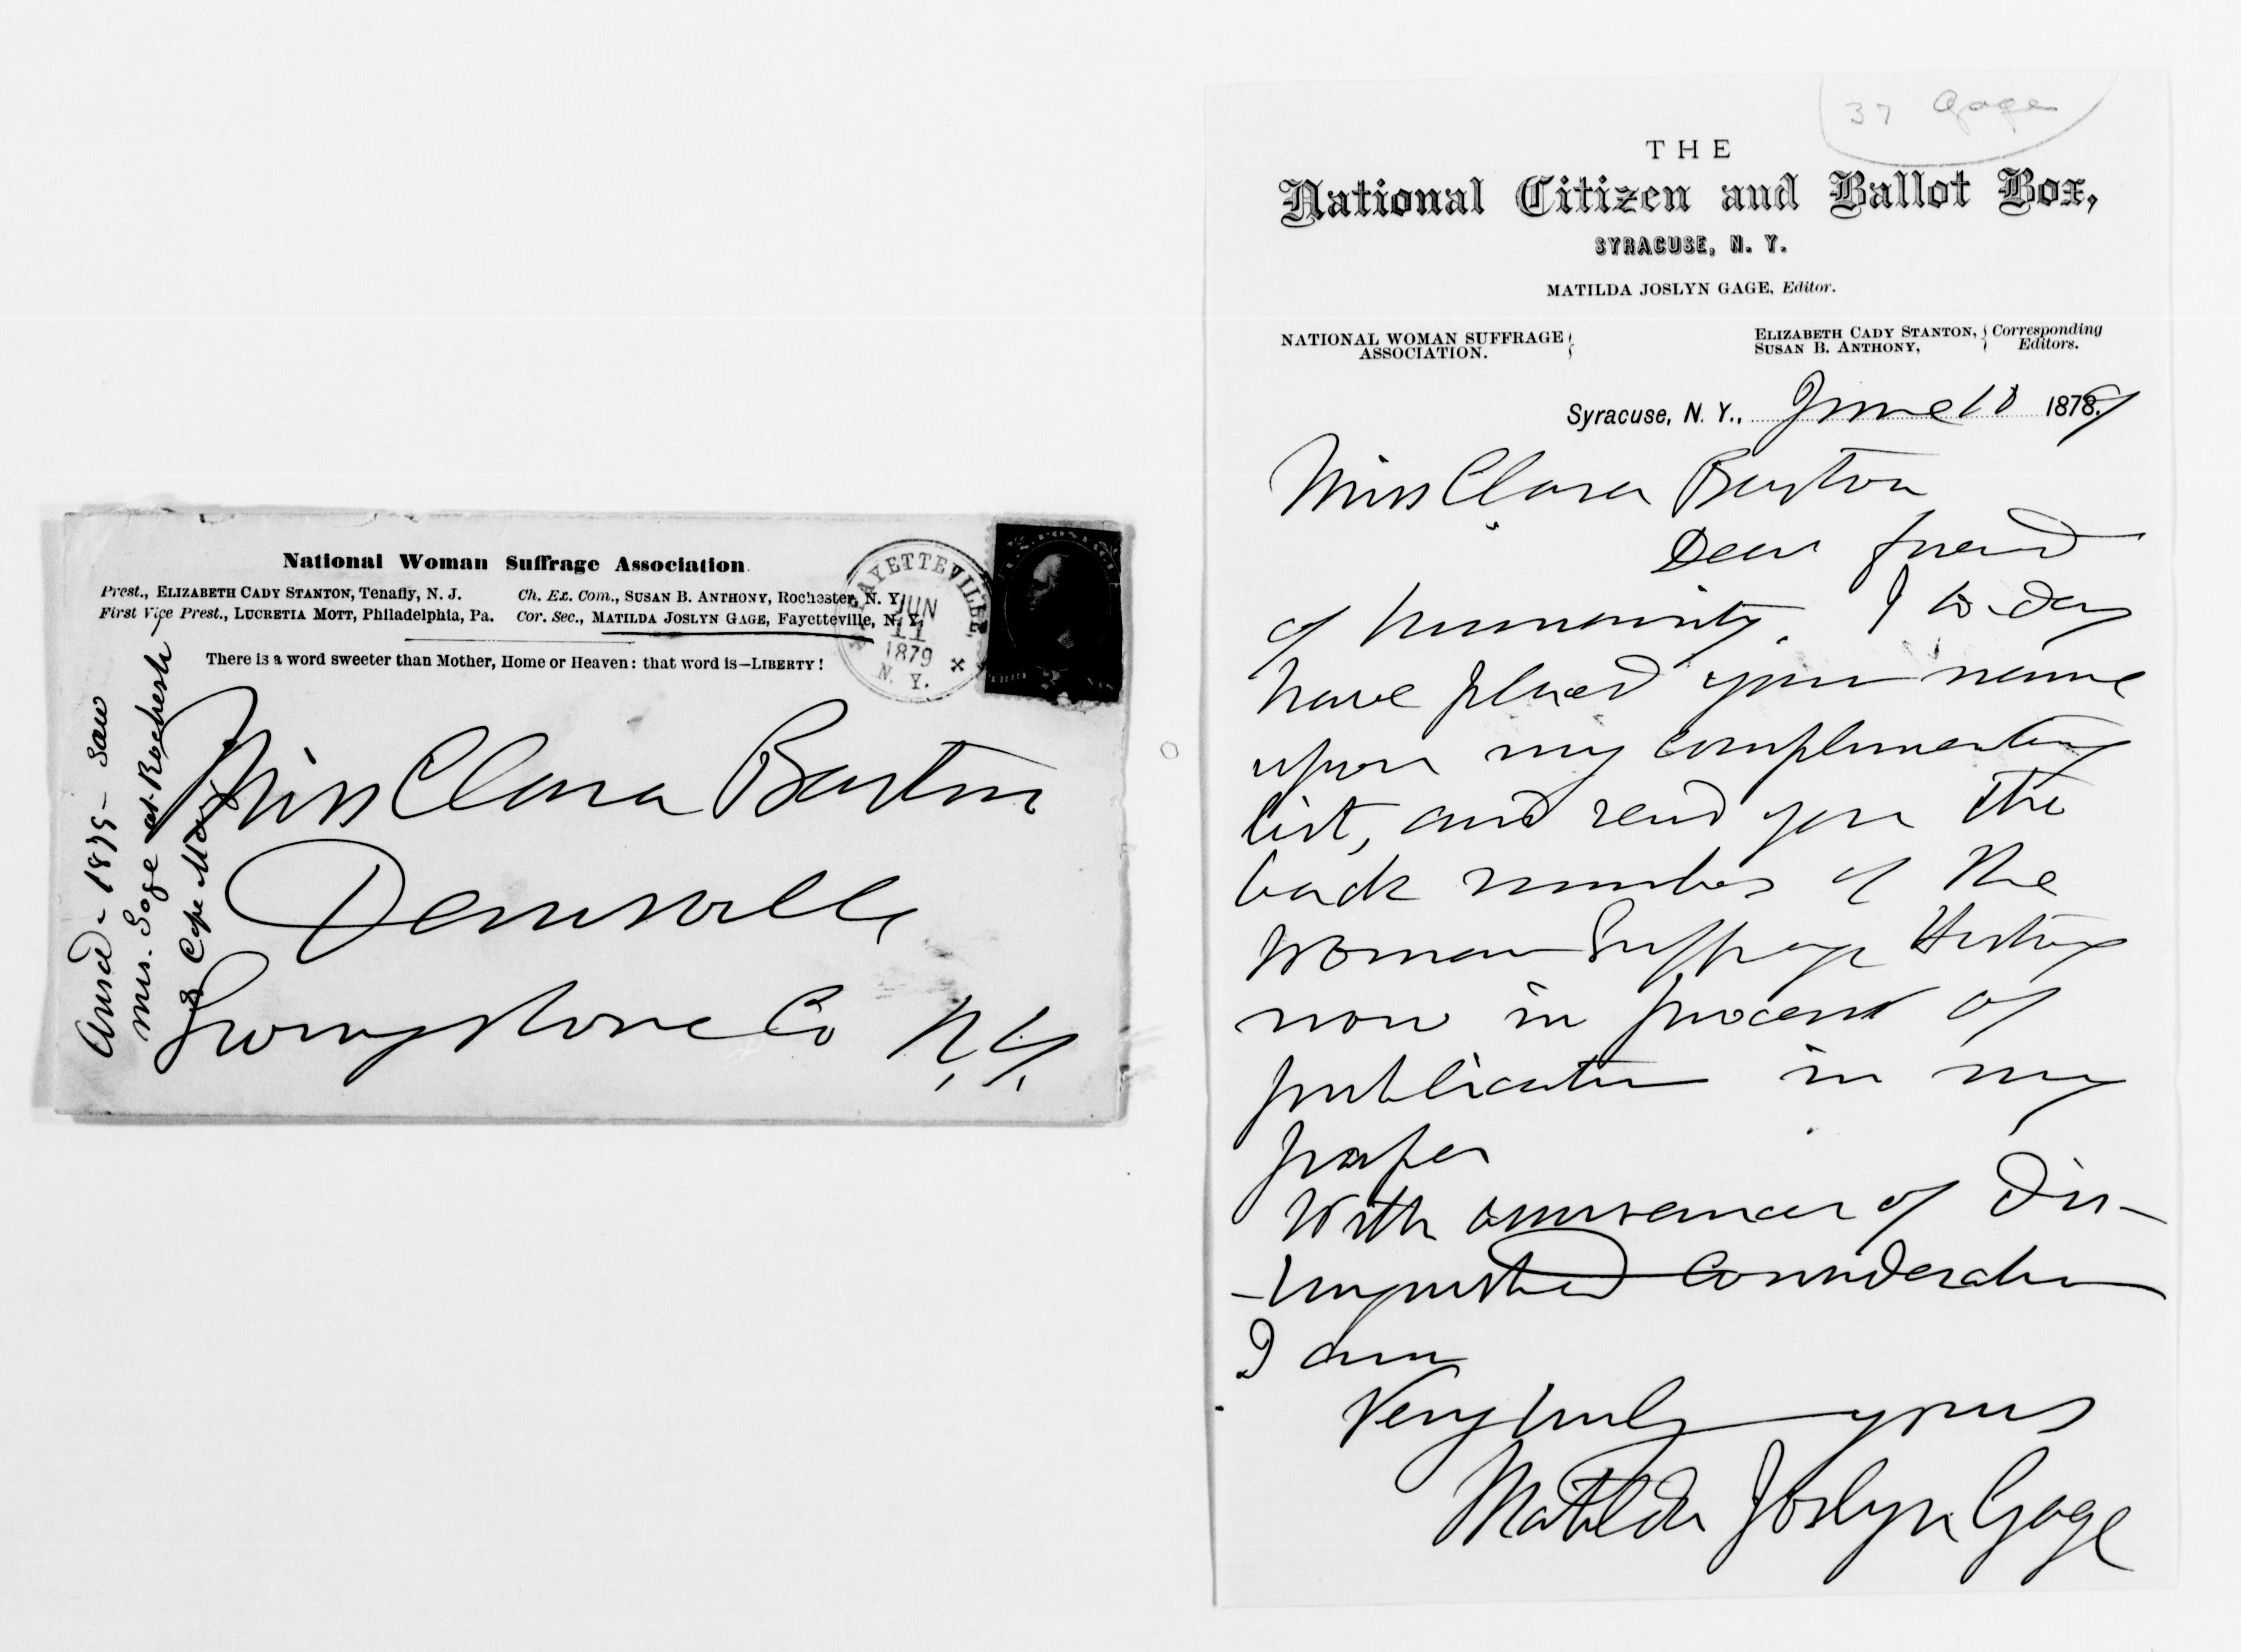 National Woman Suffrage Association.
Prest., ELIZABETH CADY STANTON, Tenafly, N. J.
Ch. Ex. Com., SUSAN B. ANTHONY, Rochester, N. Y.
First Vice Prest., LUCRETIA MOTT, Philadelphia, Pa.
Cor. Sec., MATILDA JOSLYN GAGE, Fayetteville, N. Y.
There is a word sweeter than Mother, Home or Heaven: that word is—LIBERTY!
FAYETTEVILLE
JUN
11
1879
N. Y.
Miss Clara Barton
Dansville
Livingstone Co N.Y.
Ansd - 1879 - Saw
Mrs. Gage at Rochester
& Cape May
37 Gage
THE
National Citizen and Ballot Box,
SYRACUSE, N. Y.
MATILDA JOSLYN GAGE, Editor.
NATIONAL WOMAN SUFFRAGE
ASSOCIATION.
ELIZABETH CADY STANTON,
SUSAN B. ANTHONY,
Corresponding
Editors.
Syracuse, N. Y., June 10 1879
Miss Clara Barton
Dear friend
of humanity. I to-day
have placed your name
upon my complimentary
list, and send you the
back numbers of the
Woman Suffrage History
now in process of
publication in my
paper
With assurances of dis-
-tinguished consideration
I am
Very truly yours
Matilda Joslyn Gage